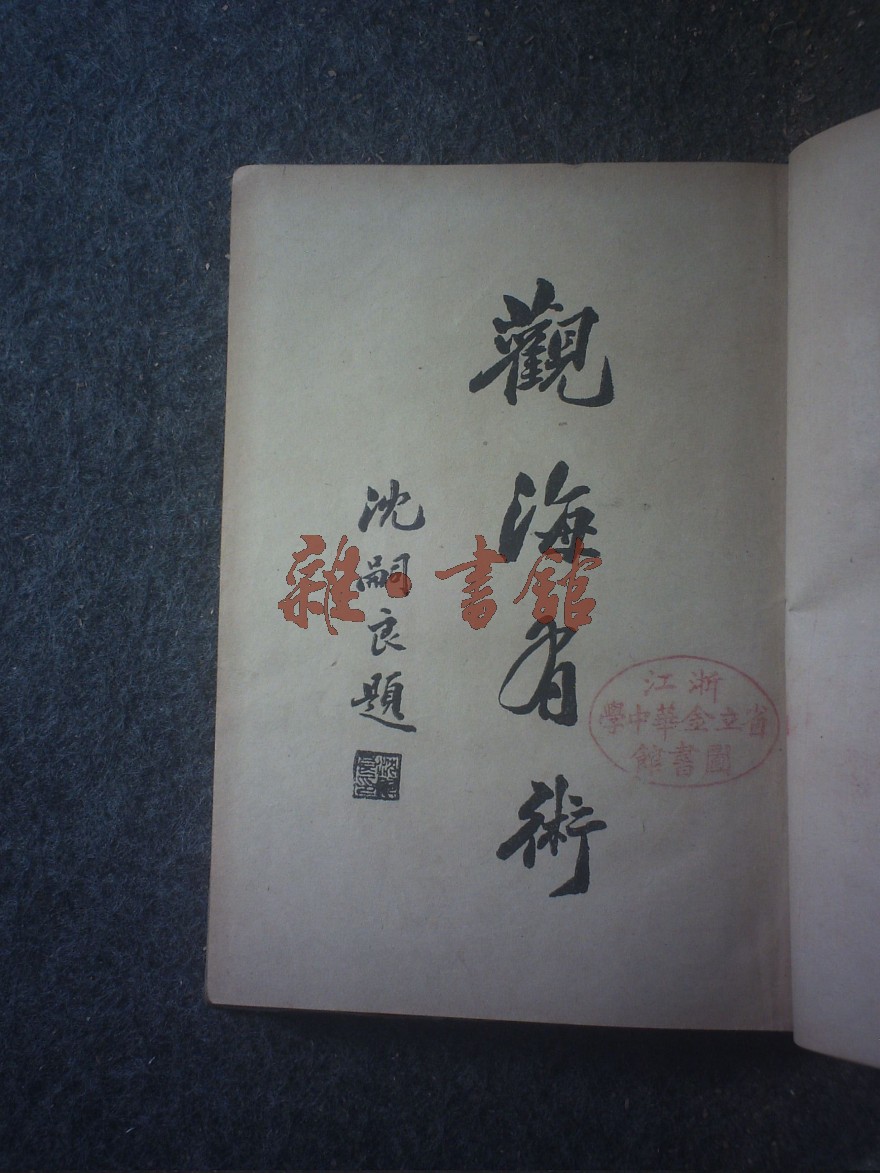 觀海有術
沈嗣良題
浙江
省立金華中學
圖書館
雜·書館